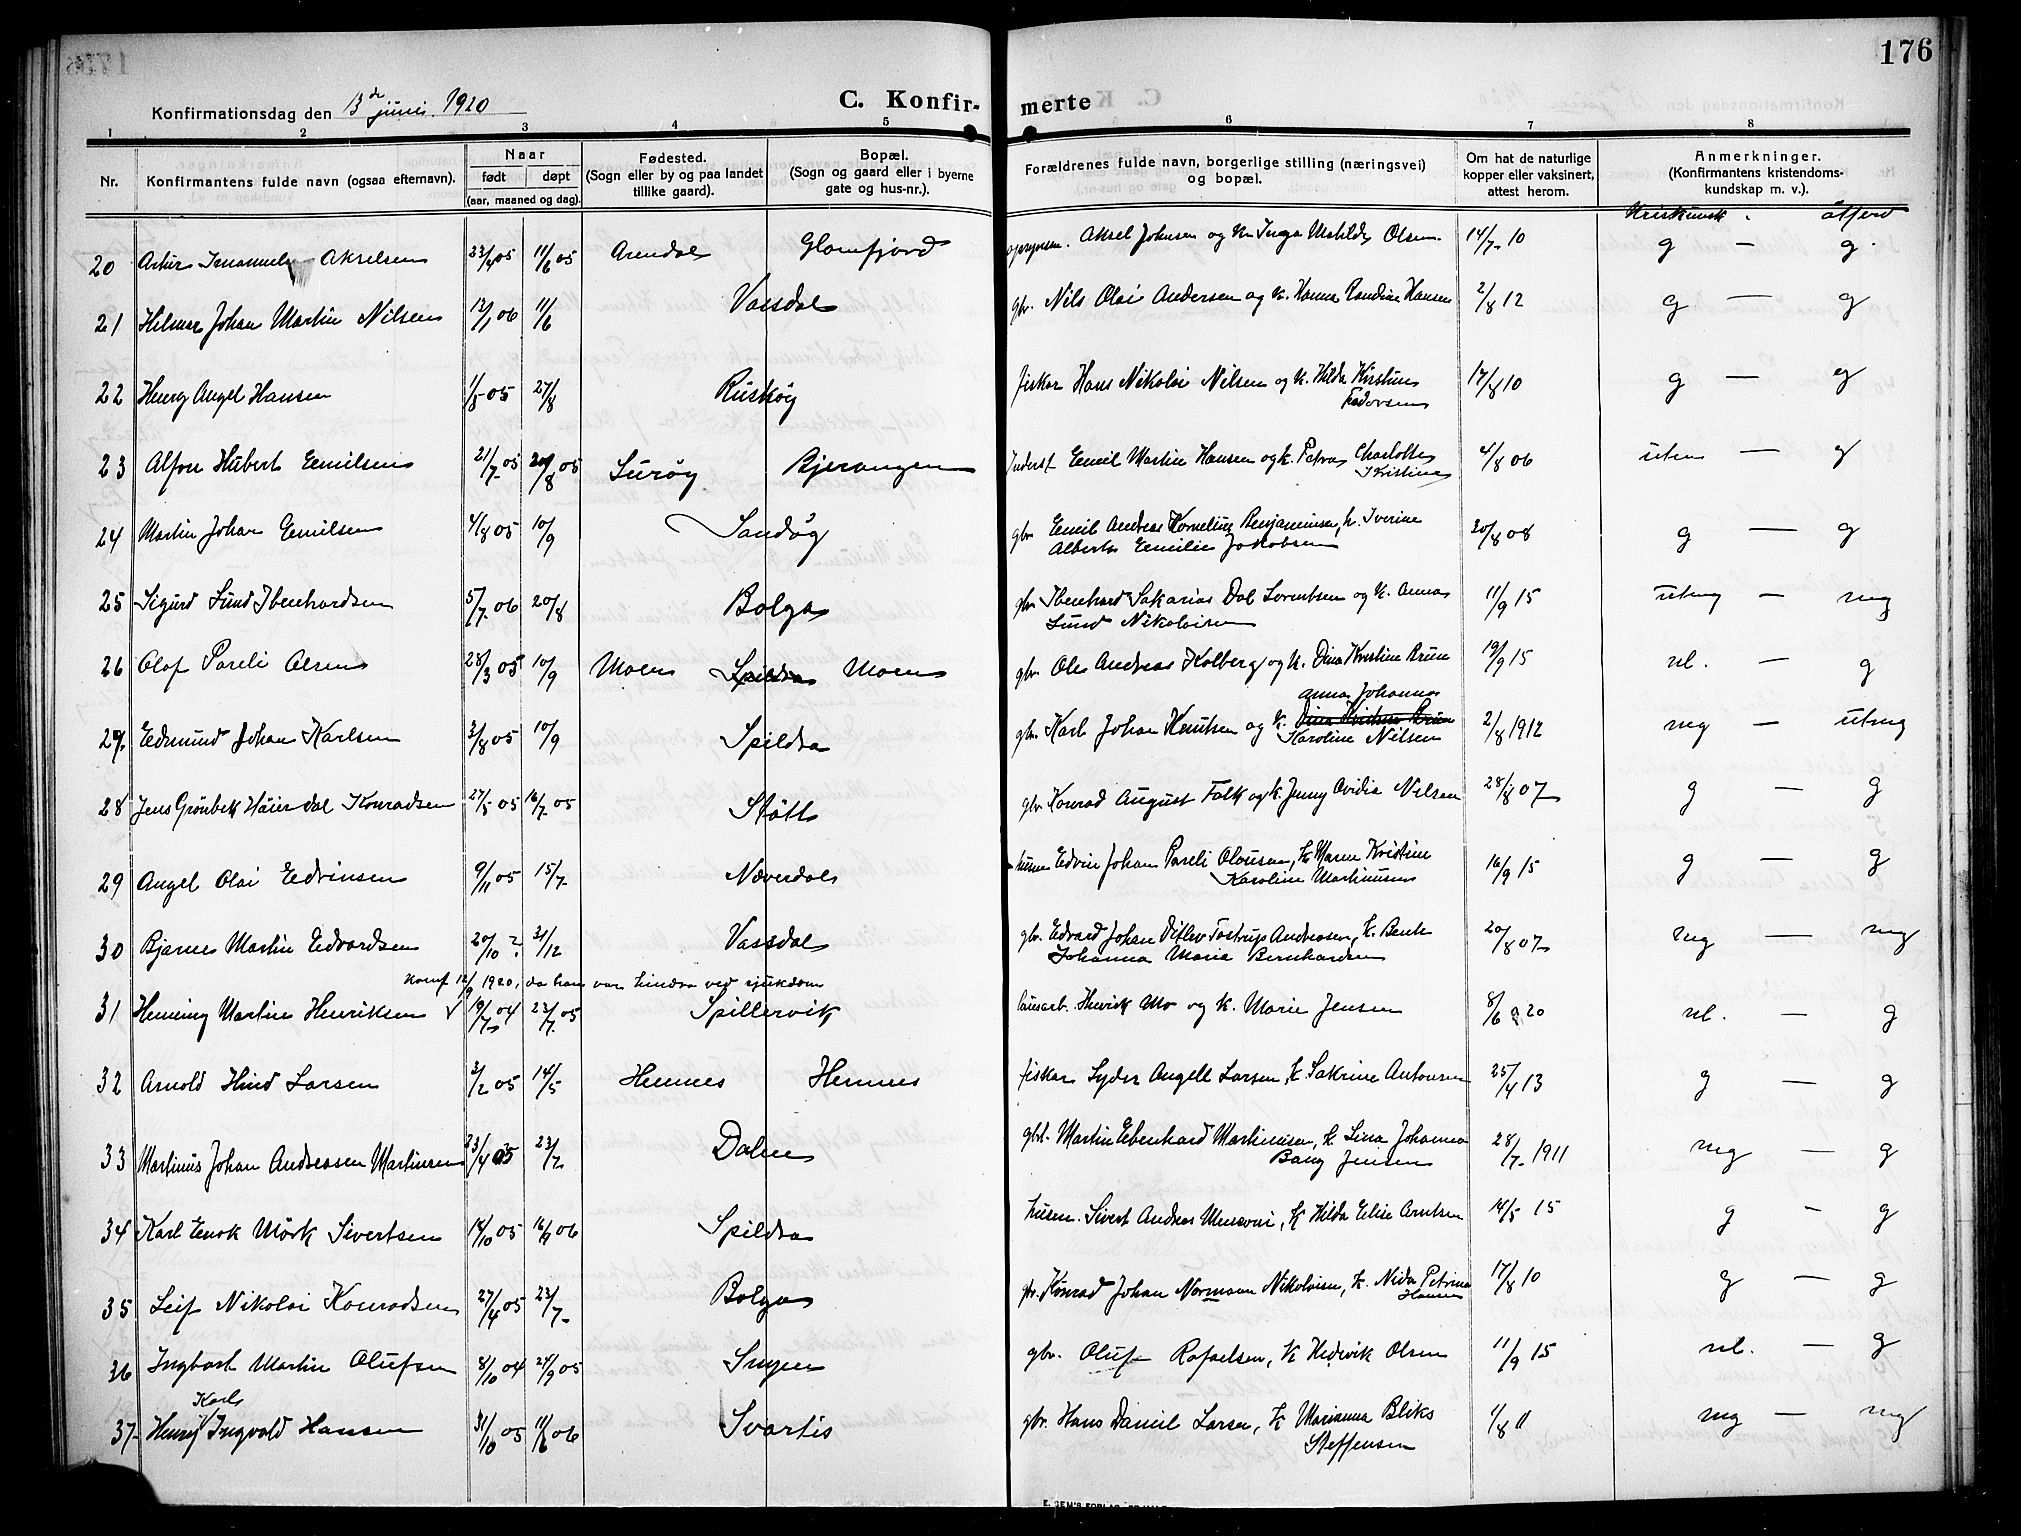 176
Konfirmationsdag den 13de juni 1920
C. Konfir- merte
1 2 3 4 5 6 7 8
Nr. Konfirmantens fulde navn (ogsaa efternavn). Naar født døpt (aar, maaned og dag). Fødested. (Sogn eller by og paa landet tillike gaard). Bopæl. (Sogn og gaard eller i byerne gate og hus-nr.). Forældrenes fulde navn, borgerlige stilling (næringsvei) og bopæl. Om hat de naturlige kopper eller vaksinert, attest herom. Anmerkninger. (Konfirmantens kristendoms-kundskap m. v.).
Kriskunsk. åtferd
20 Artur Imanuel Akselsen 23/4 05 11/6 05 Arendal Glomfjord Aksel Johnsen og k. Inga Mathilde Olsen 14/7 10 g — g.
21 Hilmar Johan Martin Nilsen 12/1 06 11/6 Vassdal gbr. Nils Olai Andersen og k. Hanna Randine Hansen 2/8 12 g — g
22 Henry Angel Hansen 1/5 05 27/8 Risøy fiskar Hans Nikolai Nilsen og k. Hilda Kristine Fedorsen 17/8 10 g — g
23 Alfon Hubert Emilsen 21/7 05 20/8 05 Surøy Bjerangen Inderst Emil Martin Hansen og k. Petra Charlotte Kristine 4/8 06 uten — g
24 Martin Johan Emilsen 4/8 05 10/9 Sandøy gbr Emil Andreas Kornelius Benjaminsen, k. Iverine Alberta Emilie Jakobsen 20/8 08 g — g
25 Sigurd Lund Ibenhardsen 5/7 06 20/8 Bolga gbr Ibenhard Sakarias Dal Lorentsen og k. Anna Lund Nikolaisen 11/9 15 utmg — mg
26 Olaf Pareli Olsen 28/3 05 10/9 Moen Spildra Moen gbr. Ole Andreas Kolberg og k. Dina Kristine Brun 19/9 15 nl. — g
27. Edmund Johan Karlsen 3/8 05 10/9 Spildra gbr. Karl Johan Knutsen og k. Dina Kristine Brun Anna Johanna Karoline Nilsen 2/8 1912 mg — utmg
28 Jens Grønbek Høierdal Konradsen 27/5 05 16/7 05 Støtt gbr Konrad August Falk og k. Jenny Ovidia Nilsen 28/8 07 g — g
29 Angel Olai Edvinsen 9/11 05 15/7 Neverdal husm Edvin Johan Pareli Olausen, k. Maren Kristine Karoline Martinusen 16/9 15 g — g
30 Bjarne Martin Edvardsen 20/10 ? 31/12 Vassdal gbr. Edvard Johan Ditlev Tostrup Andreasen, k. Bente Johanna Maria Bernhardsen 20/8 07 mg — mg
Konf 12/9 1920, da han var hindra ved sjukdom
31 Henning Martin Henriksen √ 19/7 04 23/7 05 Spillervik lausarb. Henrik Mo og k. Marie Jensen 8/6 20 nl. — g
32 Arnold Hind Larsen 3/2 05 14/5 Hemnes Hemnes fiskar Lyder Angell Larsen, k Sakrine Antonsen 25/4 13 g — g
33 Martinus Johan Andreassen Martinsen 23/4 05 23/7 Dalen gbr. Martin Ebenhard Martinsen, k Lina Johanna Bang Jensen 28/7 1911 mg — g
34 Karl Enok Mørk Sivertsen 14/10 05 16/4 06 Spildra husm. Sivert Andreas , k Hilda Elise Arntsen 14/5 15 g — g
35 Leif Nikolai Konradsen 27/4 05 23/7 Bolga gbr. Konrad Johan Normann Nikolaisen, k. Nida Petrina Hansen 17/8 10 g — g
36 Ingbart Martin Olufsen 8/10 04 24/9 05 gbr. Oluf Rafaelsen, k Hedevik Olsen 11/9 15 nl. — g
Karl
37 Henrij Ingvald Hansen 31/10 05 11/6 06 Svartis gbr. Hans Daniel Larsen, k Marianna Bliks Steffensen 1/8 11 mg — mg